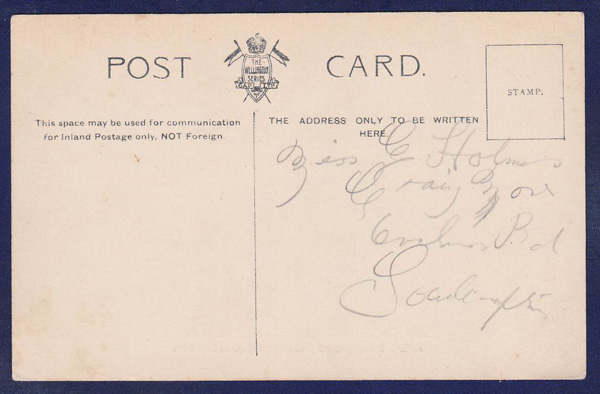 POST CARD.
THE
WELLINGTON
SERIES
STAMP.
This space may be used for communication
for Inland Postage only, NOT Foreign.
THE ADDRESS ONLY TO BE WRITTEN
HERE.
Miss G Holmes
Craig
Rd
Southampton